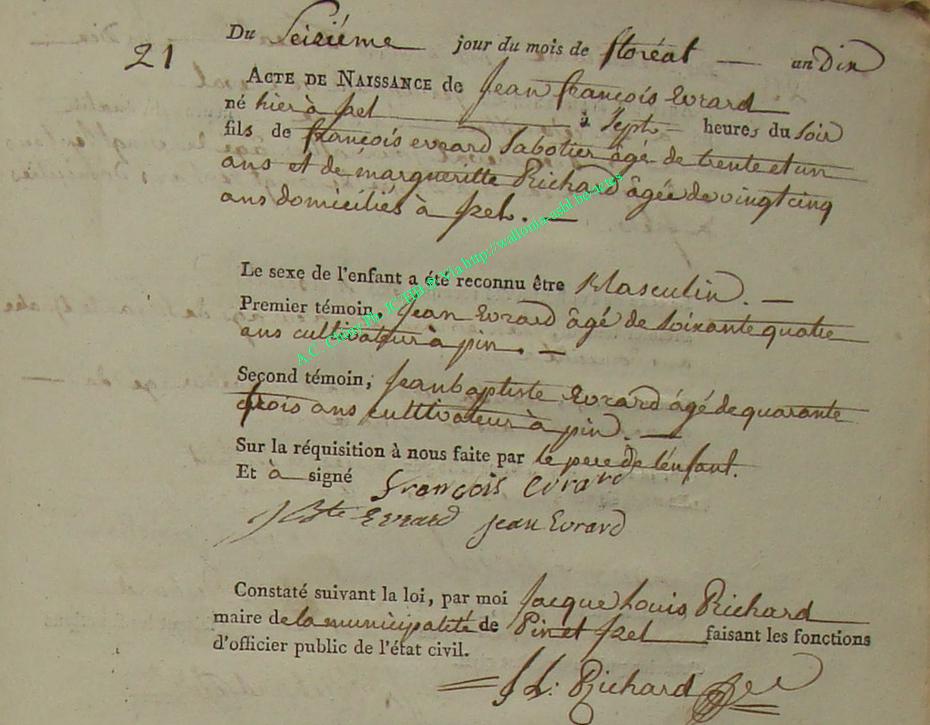 21
Du Seiziéme jour du mois de floréal — an Dix
ACTE DE NAISSANCE de Jean françois Evrard
né hier à izel à Sept heures du Soir
fils de françois evrard Sabotier âgé de trente et un
ans et de margueritte Richard âgée de vingt cinq
ans domiciliés à izel. —
Le sexe de l'enfant a été reconnu être Masculin. —
Premier témoin, Jean Evrard âgé de soixante quatre
ans cultivateur à pin. —
Second témoin, Jean baptiste Evrard âgé de quarante
trois ans cultivateur à pin. —
Sur la réquisition à nous faite par le pere de l'enfant.
Et à signé françois evrard
J Bte Evrard Jean Evrard
Constaté suivant la loi, par moi Jacque Louis Richard
maire de la municipalité de Pin et izel faisant les fonctions
d'officier public de l'état civil.
J L: Richard
A.C. http://wallonia-asbl.be-actes